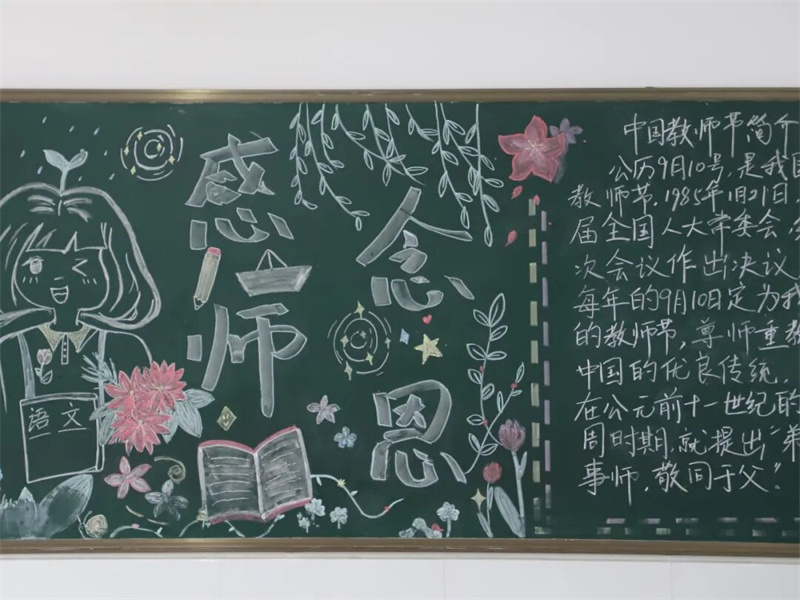 感念
师恩
语文
中国教师节简介
公历9月10号,是我国
教师节.1985年1月21日,
届全国人大常委会
次会议作出决议,
每年的9月10日定为我
的教师节,尊师重教
中国的优良传统.
在公元前十一世纪的
周时期,就提出“弟
事师,敬同于父.”